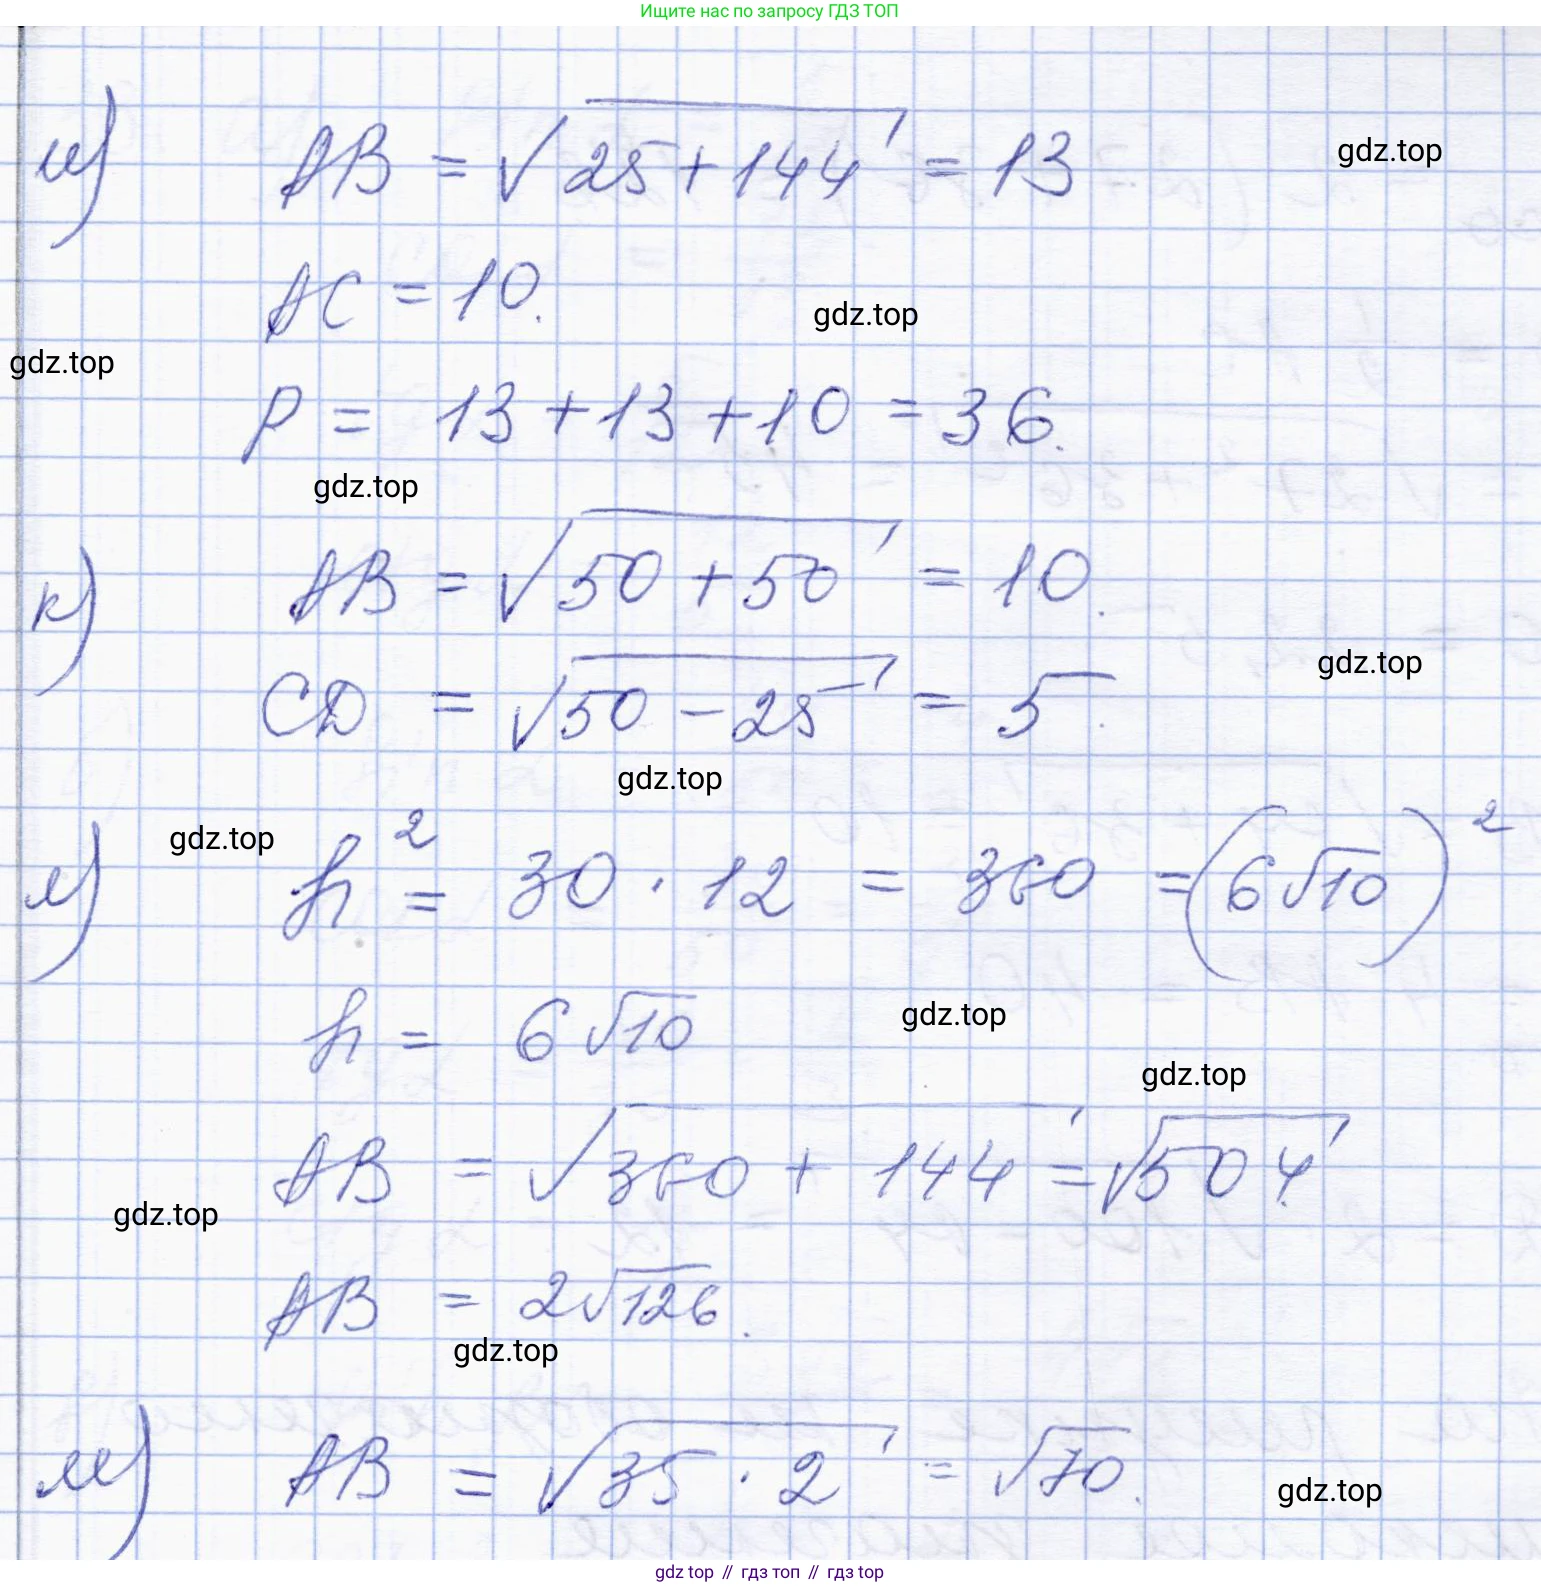 Ищите нас по запросу ГДЗ ТОП
и) AB = √(25 + 144) = 13
gdz.top
AC = 10.
gdz.top
gdz.top
P = 13 + 13 + 10 = 36.
gdz.top
к) AB = √(50 + 50) = 10.
gdz.top
CD = √(50 − 25) = 5.
gdz.top
gdz.top
л) h² = 30 · 12 = 360 = (6√10)²
h = 6√10
gdz.top
gdz.top
AB = √(360 + 144) = √504.
gdz.top
AB = 2√126.
gdz.top
м) AB = √(35 · 2) = √70.
gdz.top
gdz top // гдз топ // гдз top